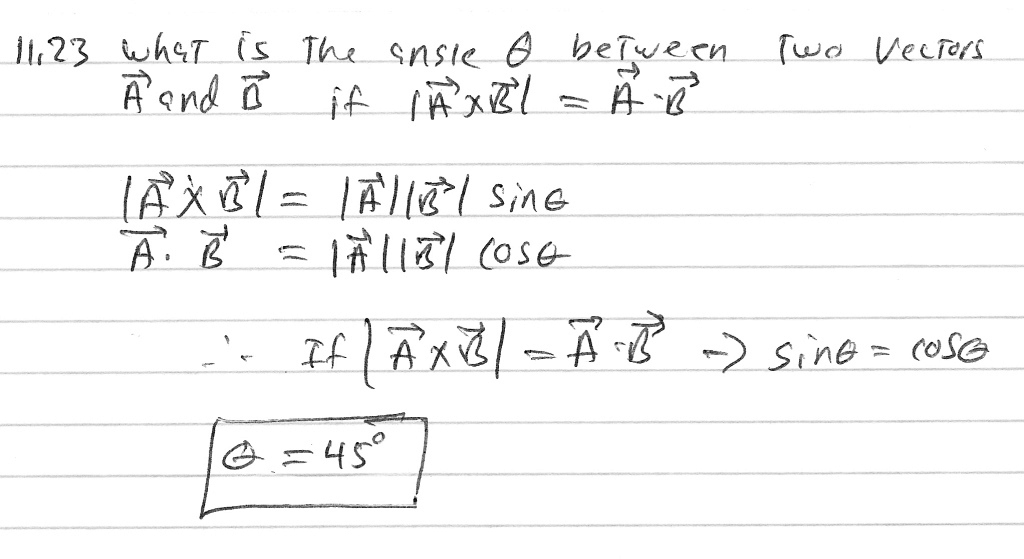 11.23 What is The angle θ between Two Vectors
A⃗ and B⃗ if |A⃗ x B⃗| = A⃗ · B⃗
|A⃗ x B⃗| = |A⃗||B⃗| sinθ
A⃗ · B⃗ = |A⃗||B⃗| cosθ
∴ If |A⃗ x B⃗| = A⃗ · B⃗ → sinθ = cosθ
θ = 45°